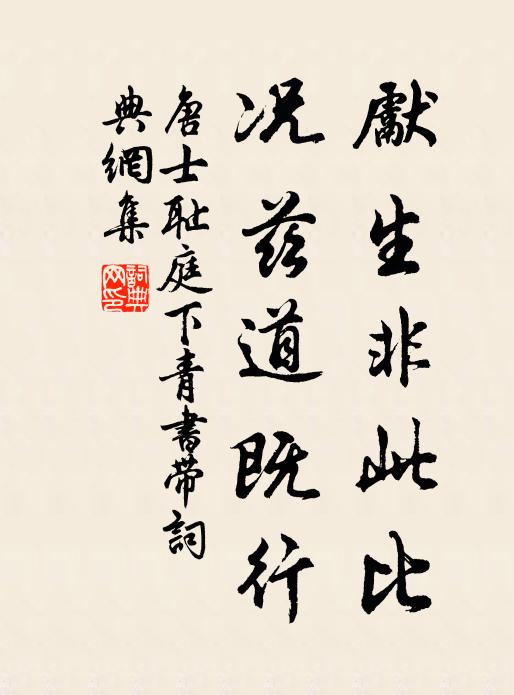 獻生非此比
况茲道既行
唐士耻庭下青書帶詞
典網集
詞典網印